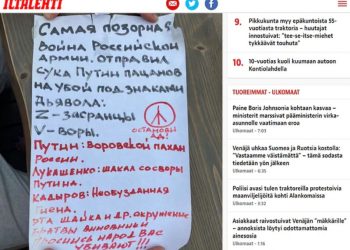 ILTALEHTI
САМАЯ ПОЗОРНАЯ
ВОЙНА РОССИЙСКОЙ
АРМИИ. ОТПРАВИЛ
СУКА ПУТИН ПАЦАНОВ
НА УБОЙ ПОД ЗНАКАМИ
ДЬЯВОЛА:
Z-ЗАСРАНЦЫ
V-ВОРЫ.
ОСТАНОВИ
АД!
ПУТИН: ВОРОВСКОЙ ПАХАН
РОССИИ.
ЛУКАШЕНКО: ШАКАЛ СО СВОРЫ
ПУТИНА.
КАДЫРОВ: НЕОБУЗДАННАЯ
ГИЕНА.
ЭТА ШАЙКА И ДР. ОКРУЖЕНИЕ
БРАТВЫ ВИНОВНЫ!
ПРОСНИСЬ НАРОД ВАС
УБИВАЮТ!!!
9. Pikkukunta myy epäkuntoista
55-vuotiasta traktoria – huutajat
innostuivat: "tee-se-itse-miehet
tykkäävät touhuta"
10. 10-vuotias kuoli kuumaan autoon
Kontiolahdella
TUOREIMMAT - ULKOMAAT
Paine Boris Johnsonia kohtaan kasvaa –
ministerit marssivat pääministerin virka-
asunnolle vaatimaan eroa
Ulkomaat
Venäjä uhkaa Suomea ja Ruotsia kostolla:
"Vastaamme välistämättä" – tämä sodasta
tiedetään yön jälkeen
Ulkomaat
Poliisi avasi tulen traktoreilla protestoivia
maanviljelijöitä kohti Alankomaissa
Ulkomaat
Asiakkaat raivostuivat Venäjän "mäkkärille"
– annoksista löytyi odottamattomia
ainesosia
Ulkomaat